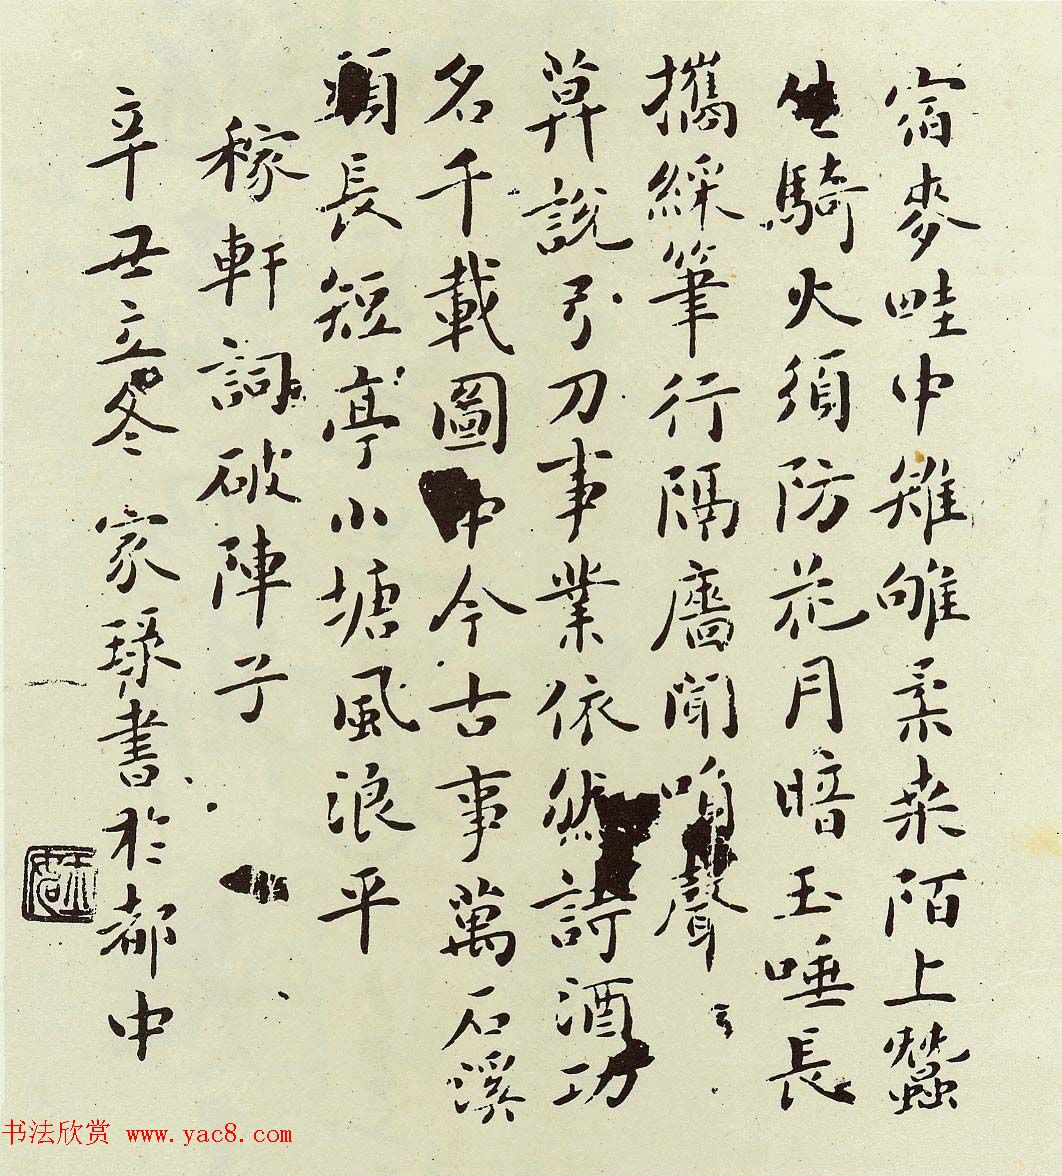 宿麥畦中雉鷕柔桑陌上蠶
生騎火須防花月暗玉唾長
攜綵筆行隔牆聞咲聲
莫說弓刀事業依然詩酒功
名千載圖中今古事萬石溪
頭長短亭小塘風浪平
稼軒詞破陣子
辛丑立冬家琭書於都中
书法欣赏 www.yac8.com